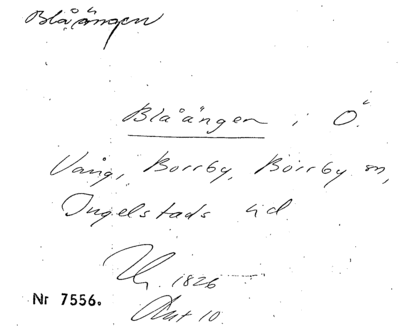 Blåängen
Blåängen i Ö.
Vång, Borrby, Borrby sn,
Ingelstads hd
1826
Akt 10.
Nr 7556.